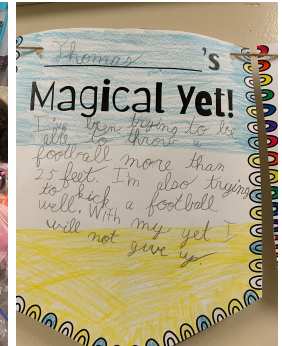 Thomas's
Magical Yet!
I've been trying to be
able to throw a
football more than
25 feet. I'm also trying
to kick a football
well. With my yet I
will not give up.